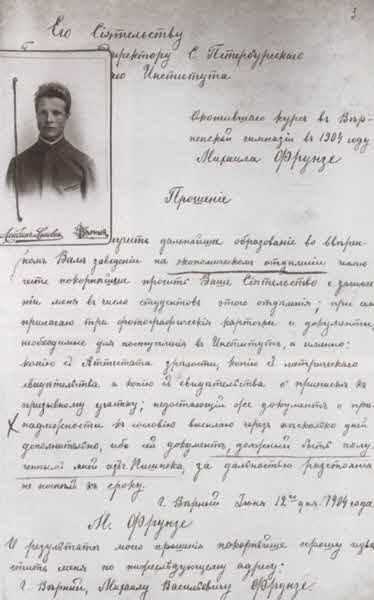 3
Его Сіятельству
Директору С. Петербургскаго
Института
Окончившаго курсъ въ Вѣр-
ненской гимназіи въ 1904 году
Михаила Фрунзе
Прошеніе
дальнѣйшее образованіе во ввѣрен-
номъ Вамъ заведеніи на экономическомъ отдѣленіи
покорнѣйше просить Ваше Сіятельство о зачисле-
ніи меня въ число студентовъ этого отдѣленія; при семъ
прилагаю три фотографическія карточки и документы,
необходимые для поступленія въ Институтъ, а именно:
копію съ Аттестата зрѣлости, копію съ метрическаго
свидѣтельства и копію съ свидѣтельства о припискѣ къ
призывному участку; недостающій же документъ о при-
надлежности къ сословію вышлю черезъ нѣсколько дней
дополнительно, ибо сей документъ, долженый быть полу-
ченнымъ мной изъ Пишпека, за дальностью разстоянія
не поспѣлъ къ сроку.
Г. Вѣрный Іюня 12го дня 1904 года
М. Фрунзе
О результатѣ моего прошенія покорнѣйше прошу извѣ-
стить меня по нижеслѣдующему адресу:
Г. Вѣрный, Михаилу Васильевичу Фрунзе
Вѣрный